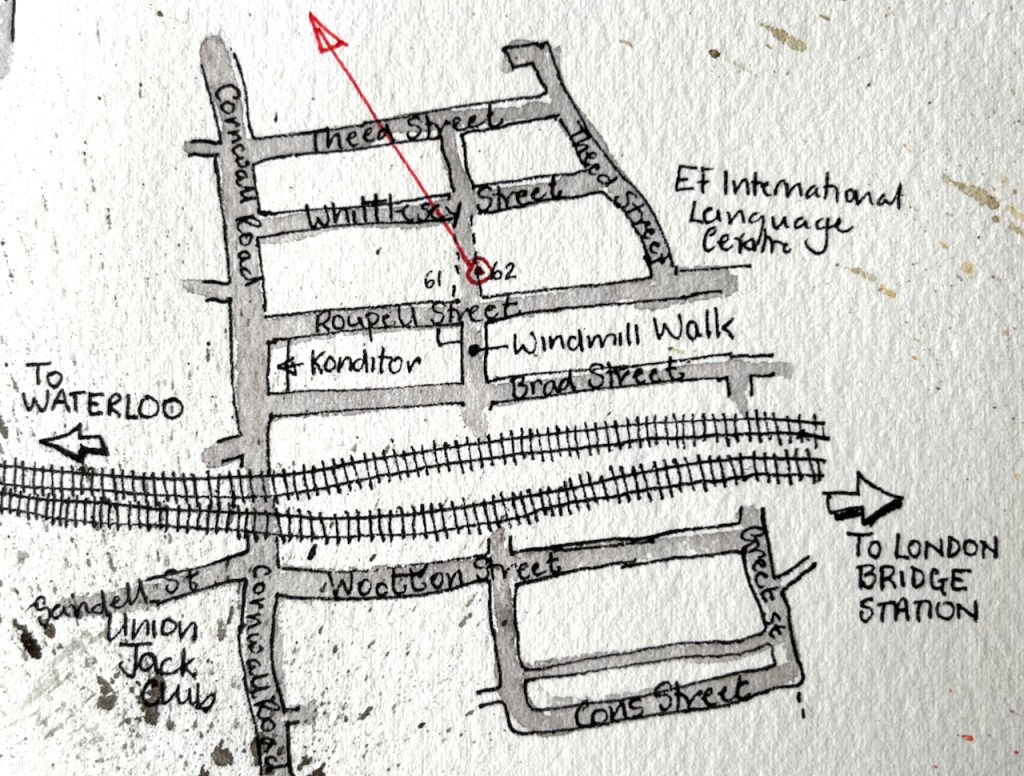 Cornwall Road
Theed Street
Theed Street
Whittlesey Street
EF International
Language
Centre
61
62
Roupell Street
Windmill Walk
Konditor
Brad Street
To
WATERLOO
TO LONDON
BRIDGE
STATION
Sandell St
Wootton Street
Greet St
Union
Jack
Club
Cornwall Road
Cons Street